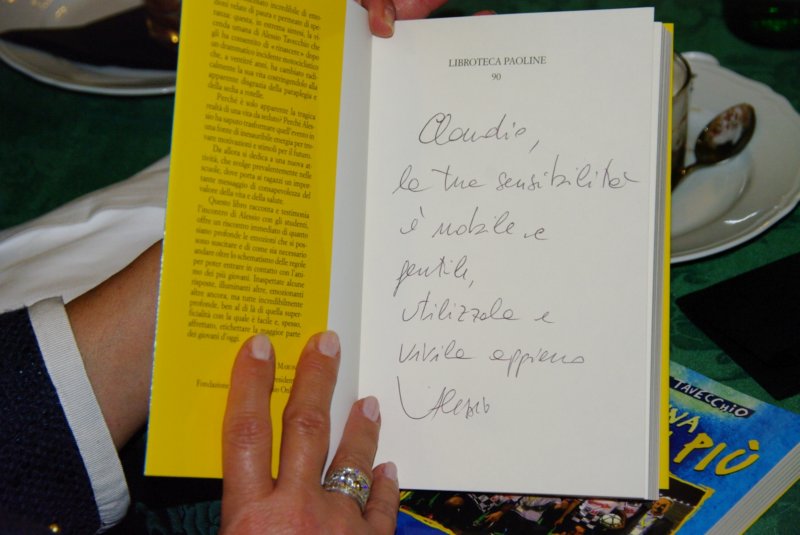 incredibile di emo-
zioni velate di paura e permeate di spe-
ranza: questa, in estrema sintesi, la vi-
cenda umana di Alessio Tavecchio che
gli ha consentito di «rinascere» dopo
un drammatico incidente motociclistico
che, a ventitré anni, ha cambiato radi-
calmente la sua vita costringendolo alla
apparente disgrazia della paraplegia e
della sedia a rotelle.
Perché è solo apparente la tragica
realtà di una vita da seduto? Perché Ales-
sio ha saputo trasformare quell'evento in
una fonte di inesauribile energia per tro-
vare motivazioni e stimoli per il futuro.
Da allora si dedica a una nuova at-
tività, che svolge prevalentemente nelle
scuole, dove porta ai ragazzi un impor-
tante messaggio di consapevolezza del
valore della vita e della salute.
Questo libro racconta e testimonia
l'incontro di Alessio con gli studenti,
offre un riscontro immediato di quanto
siano profonde le emozioni che si pos-
sono suscitare e di come sia necessario
andare oltre lo schematismo delle regole
per poter entrare in contatto con l'ani-
mo dei più giovani. Inaspettate alcune
risposte, illuminanti altre, emozionanti
altre ancora, ma tutte incredibilmente
profonde, ben al di là di quella super-
ficialità con la quale è facile e, spesso,
affrettato, etichettare la maggior parte
dei giovani d'oggi.
Fondazione
LIBROTECA PAOLINE
90
Claudio,
la tua sensibilità
è nobile e
gentile,
utilizzala e
vivila appieno
Alessio
TAVECCHIO
PIÙ